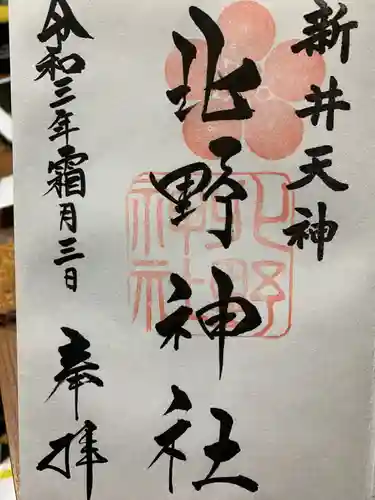 新井天神
北野神社
令和三年霜月三日
奉拝
北野神社